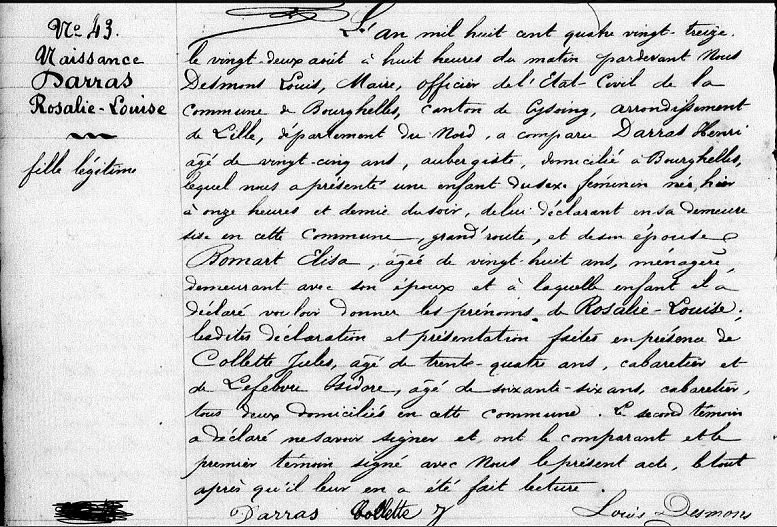 No 43.
Naissance
Darras
Rosalie-Louise
fille légitime
L'an mil huit cent quatre vingt-treize.
le vingt-deux août à huit heures du matin pardevant Nous
Desmons Louis, Maire, officier de l'Etat-Civil de la
Commune de Bourghelles, canton de Cysoing, arrondissement
de Lille, département du Nord, a comparu Darras Henri
âgé de vingt-cinq ans, aubergiste, domicilié à Bourghelles,
lequel nous a présenté une enfant du sexe féminin née, hier
à onze heures et demie du soir, de lui déclarant en sa demeure
sise en cette commune, grand'route, et de son épouse
Bomart Elisa, âgée de vingt-huit ans, ménagère,
demeurant avec son époux et à laquelle enfant il a
déclaré vouloir donner les prénoms de Rosalie-Louise.
lesdites déclaration et présentation faites en présence de
Collette Jules, âgé de trente-quatre ans, cabaretier et
de Lefebvre Isidore, âgé de soixante-six ans, cabaretier,
tous deux domiciliés en cette commune. Le second témoin
a déclaré ne savoir signer et ont le comparant et le
premier témoin signé avec Nous le présent acte, le tout
après qu'il leur en a été fait lecture.
Darras Collette J Louis Desmons